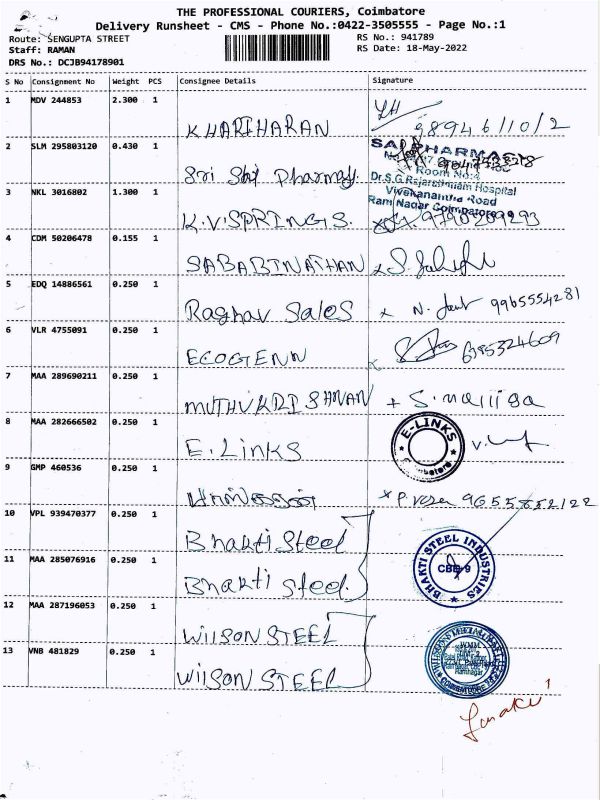 THE PROFESSIONAL COURIERS, Coimbatore
Delivery Runsheet - CMS - Phone No.:0422-3505555 - Page No.:1
Route: SENGUPTA STREET
RS No.: 941789
Staff: RAMAN
RS Date: 18-May-2022
DRS No.: DCJB94178901
S No Consignment No Weight PCS Consignee Details Signature
1 MDV 244853 2.300 1
KHARIHARAN 98946110/2
2 SLM 295803120 0.430 1
SAI PHARMACY
Room No:4
Sri Sai Pharmacy.
Dr.S.G.Rajarathinam Hospital
3 NKL 3016802 1.300 1
Vivekanantha Road
Ram Nagar Coimbatore
K.V.SPRINGS. 9790209293
4 CDM 50206478 0.155 1
SABABINATHAN
5 EDQ 14886561 0.250 1
Raghav Sales x N. 9965554281
6 VLR 4755091 0.250 1
ECOGENN 6995324609
7 MAA 289690211 0.250 1
MUTHUKRISHNAN + S.
8 MAA 282666502 0.250 1
E-LINKS
Coimbatore
E. Links
9 GMP 460536 0.250 1
x P.
10 VPL 939470377 0.250 1
Bhakti Steel
BHAKTI STEEL INDUSTRIES
CBE-9
11 MAA 285076916 0.250 1
Bhakti Steel.
12 MAA 287196053 0.250 1
WILSON STEEL
13 VNB 481829 0.250 1
WILSON STEEL